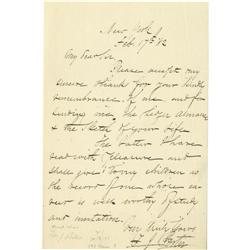 New York
Feb. 17th 82
My Dear Sir
Please accept my
sincere thanks for your kind
remembrance of me and for
sending me the Ledger Almanac
& the Sketch of your life
The latter I have
read with pleasure and
shall give to my children as
the record of one whose career
is well worthy of study
and imitation.
Very Truly Yours